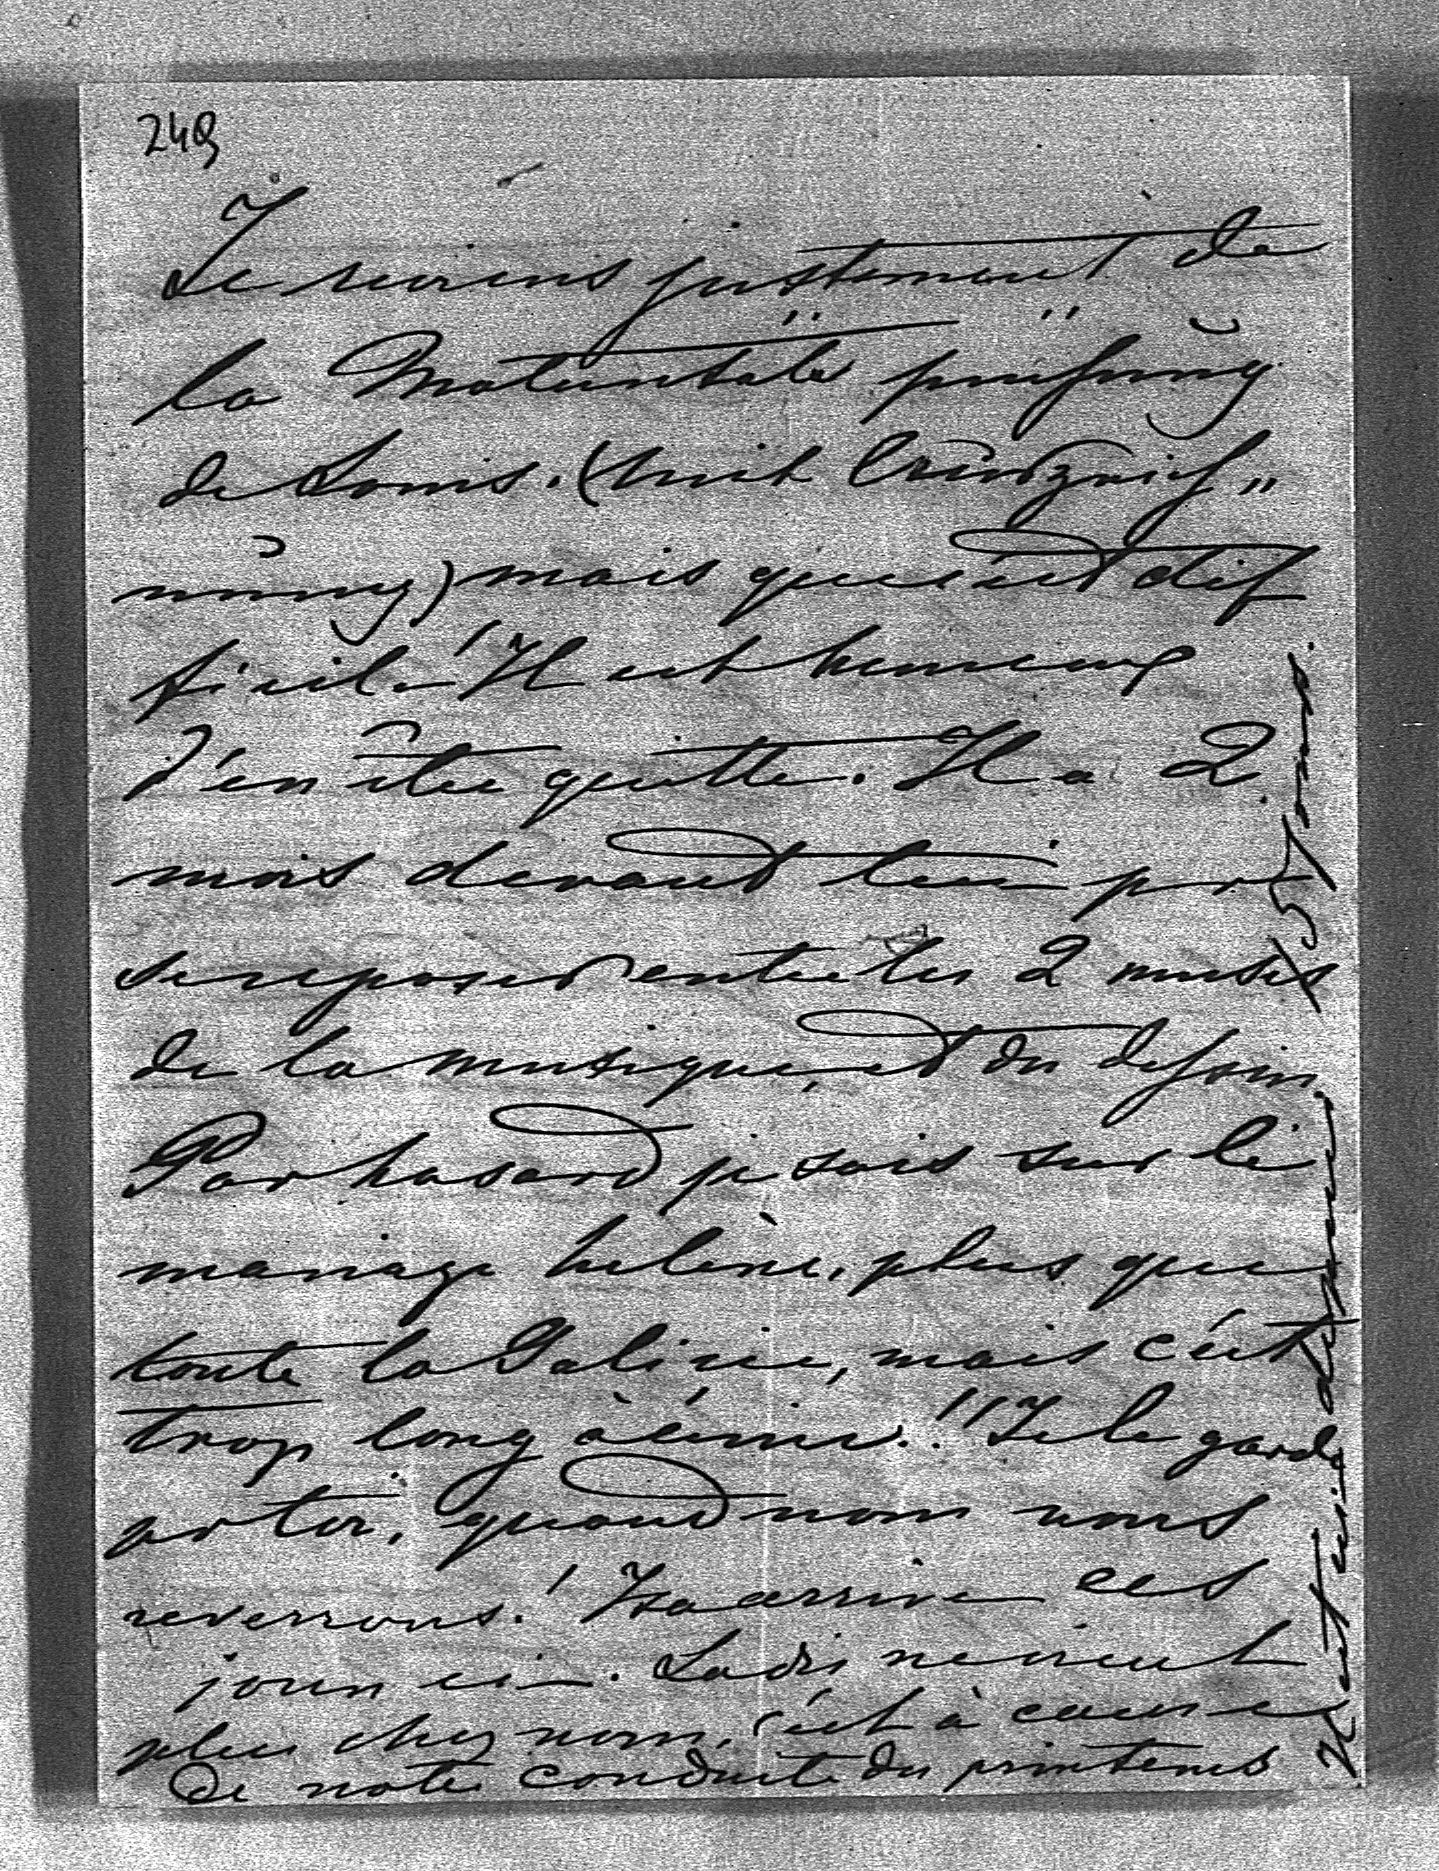 249
Je reviens justement de
la Maturitäts prüfung
de Louis. (mit Auszeich„
nung) mais que c'est dif
ficile! Il est heureux
d'en être quitte. Il a 2
mois devant lui pr
se reposer entre les 2 muses
de la musique, et du dessin.
Par hasard je sais sur le
mariage helène, plus que
toute la Galicie, mais c'est
trop long à écrire!! Je le garde
pr toi, quand nous nous
reverrons! Isa arrive ces
jours ci. Ladis ne vient
plus chez nous, c'est à cause
de notre conduite du printems
15 jours.